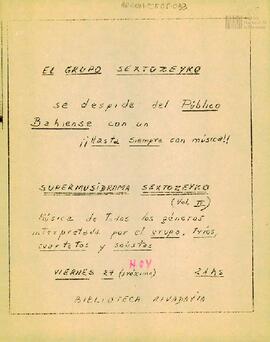 EL GRUPO SEXTOZEYRO
se despide del Público
Bahiense con un
¡¡Hasta Siempre con música!!
SUPERMUSIDRAMA SEXTOZEYRO
(Vol. II)
Música de Todos los géneros
interpretada por el grupo, tríos,
cuartetos y solistas
HOY
VIERNES 27 (próximo) 21 Hs
BIBLIOTECA RIVADAVIA